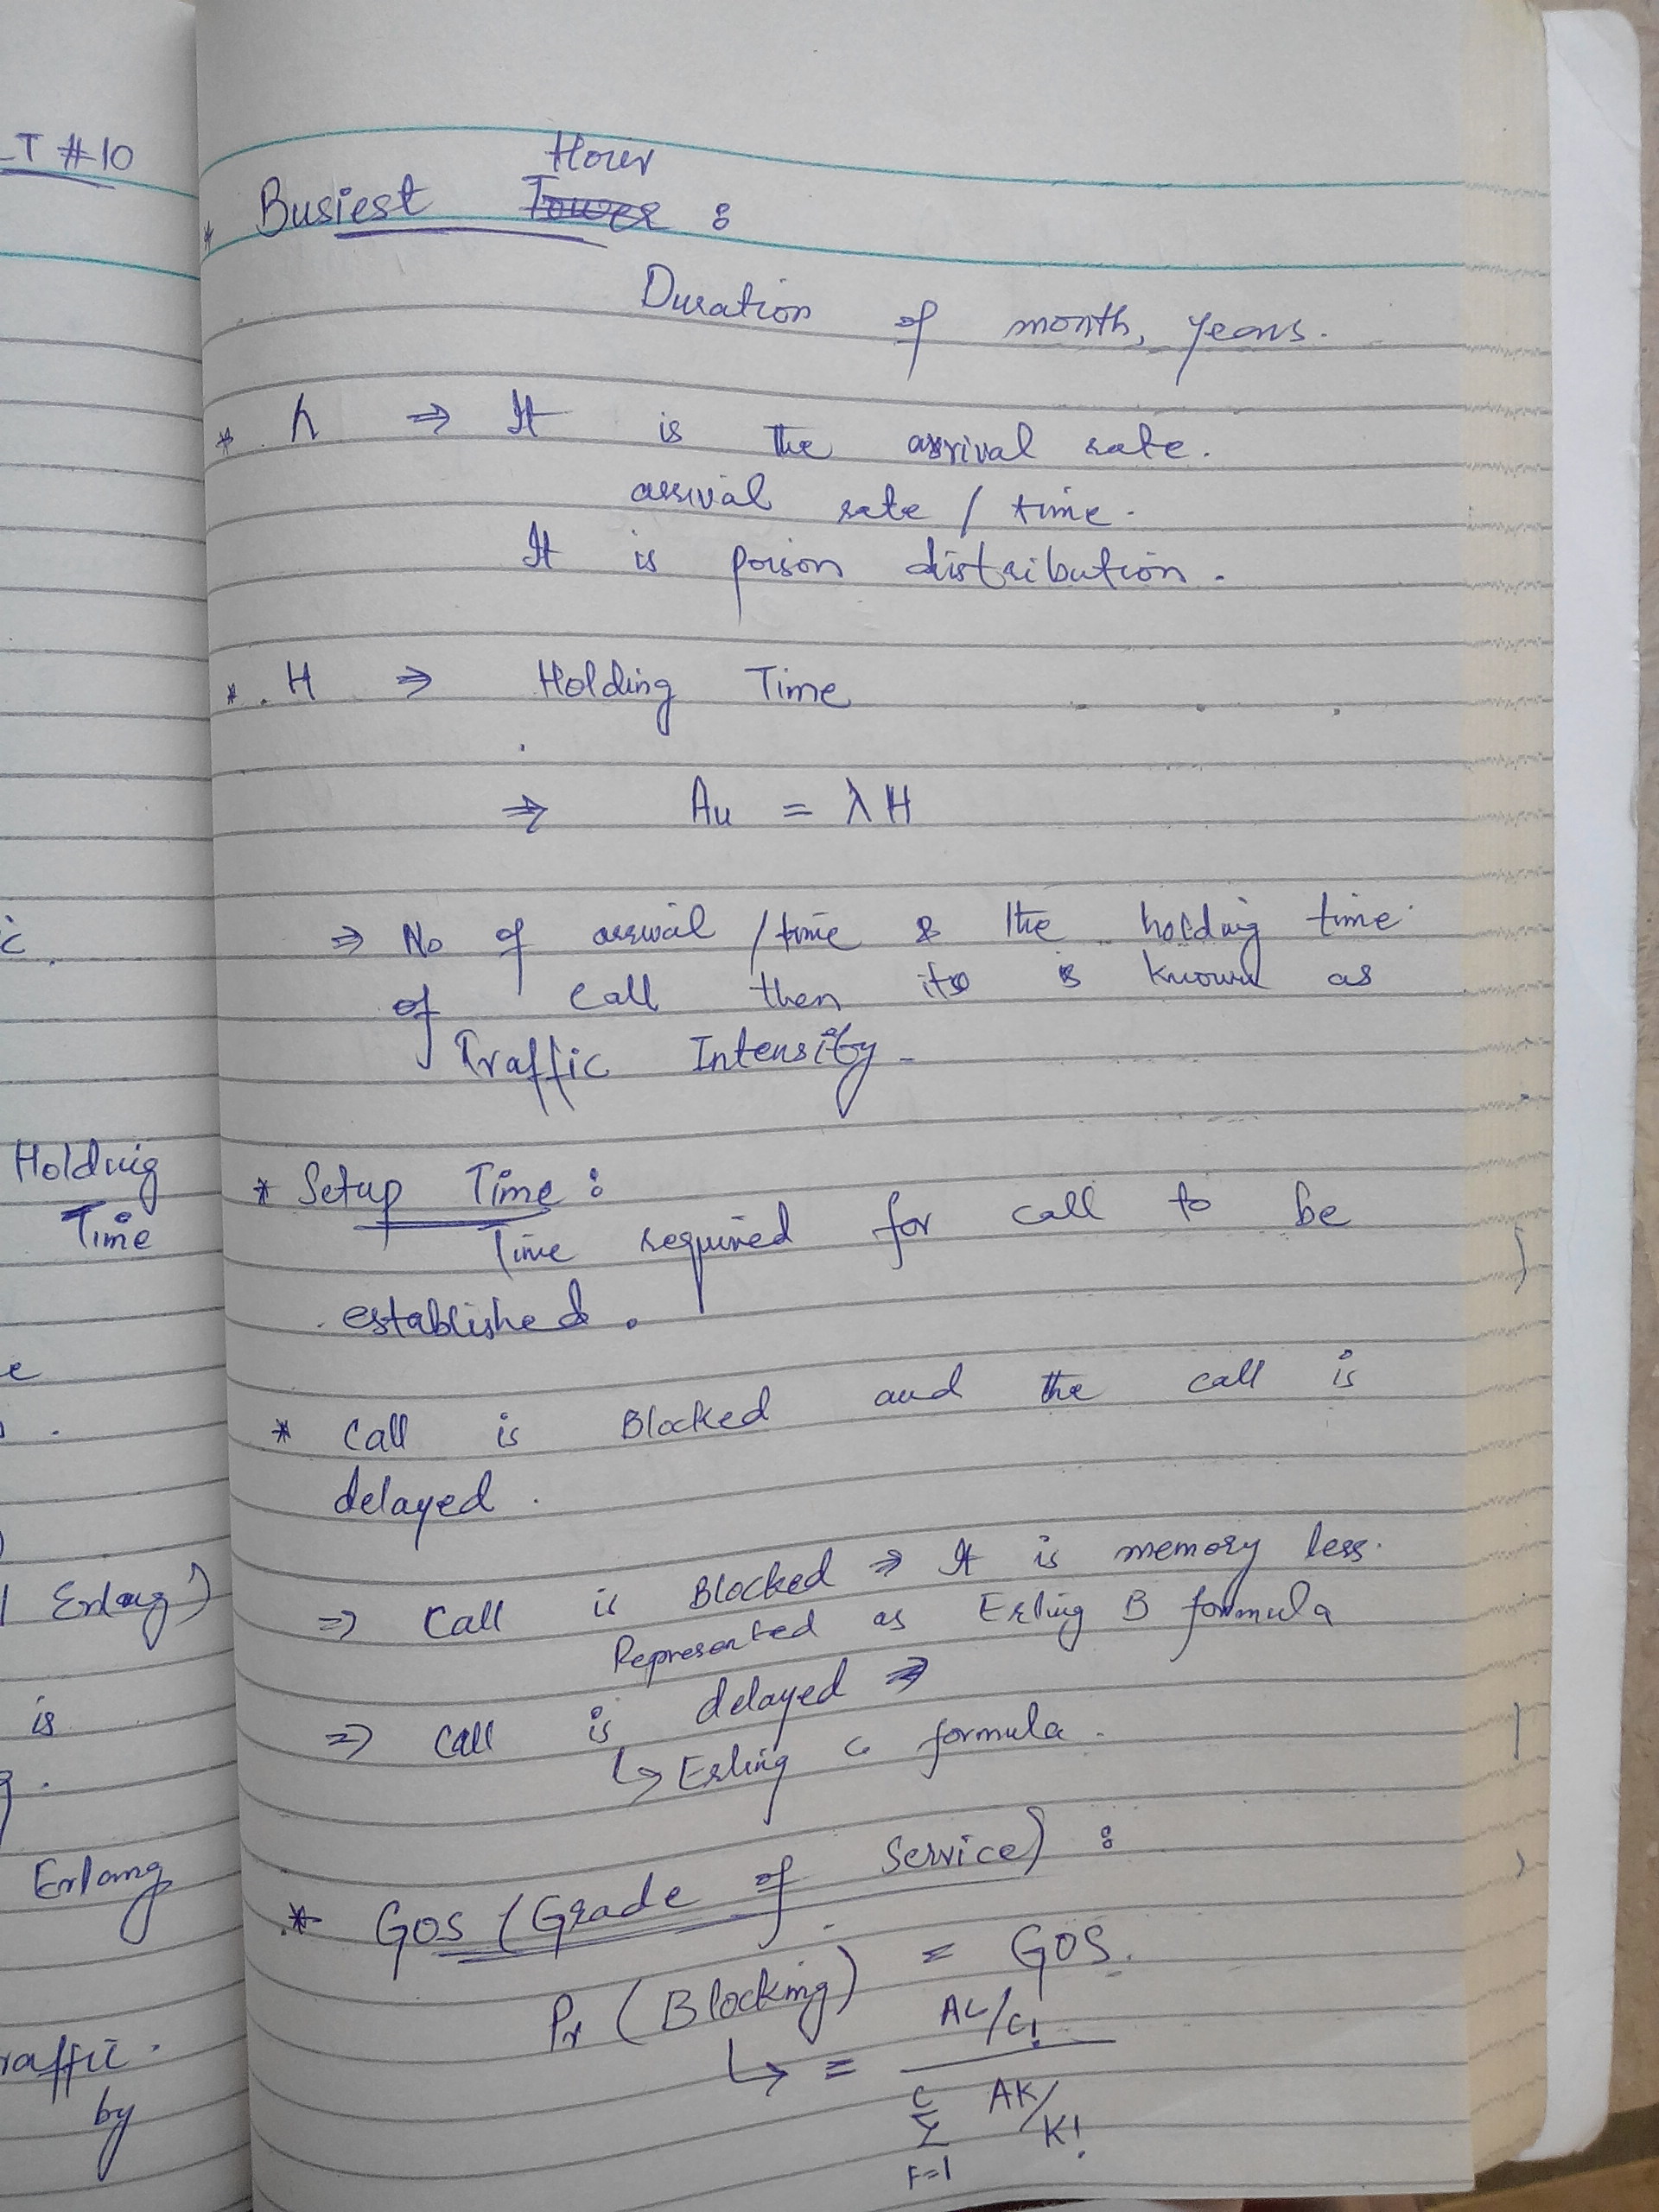 LT #10
Holding
Time
Erlang)
is
Erlang
raffic.
by
Hour
* Busiest Tower :
Duration of month, years.
* λ ⇒ It is the arrival rate.
arrival rate / time.
It is poison distribution.
* H ⇒ Holding Time
⇒ Au = λH
⇒ No of arrival / time & the holding time
of call then its is known as
Traffic Intensity.
* Setup Time :
Time required for call to be
established.
* Call is Blocked and the call is
delayed.
⇒ Call is Blocked ⇒ It is memory less.
Represented as Erling B formula
⇒ Call is delayed ⇒
↳ Erling C formula.
* GOS (Grade of Service) :
Pr (Blocking) = GOS.
AC/C!
↳ =
C
Σ AK/K!
F=1